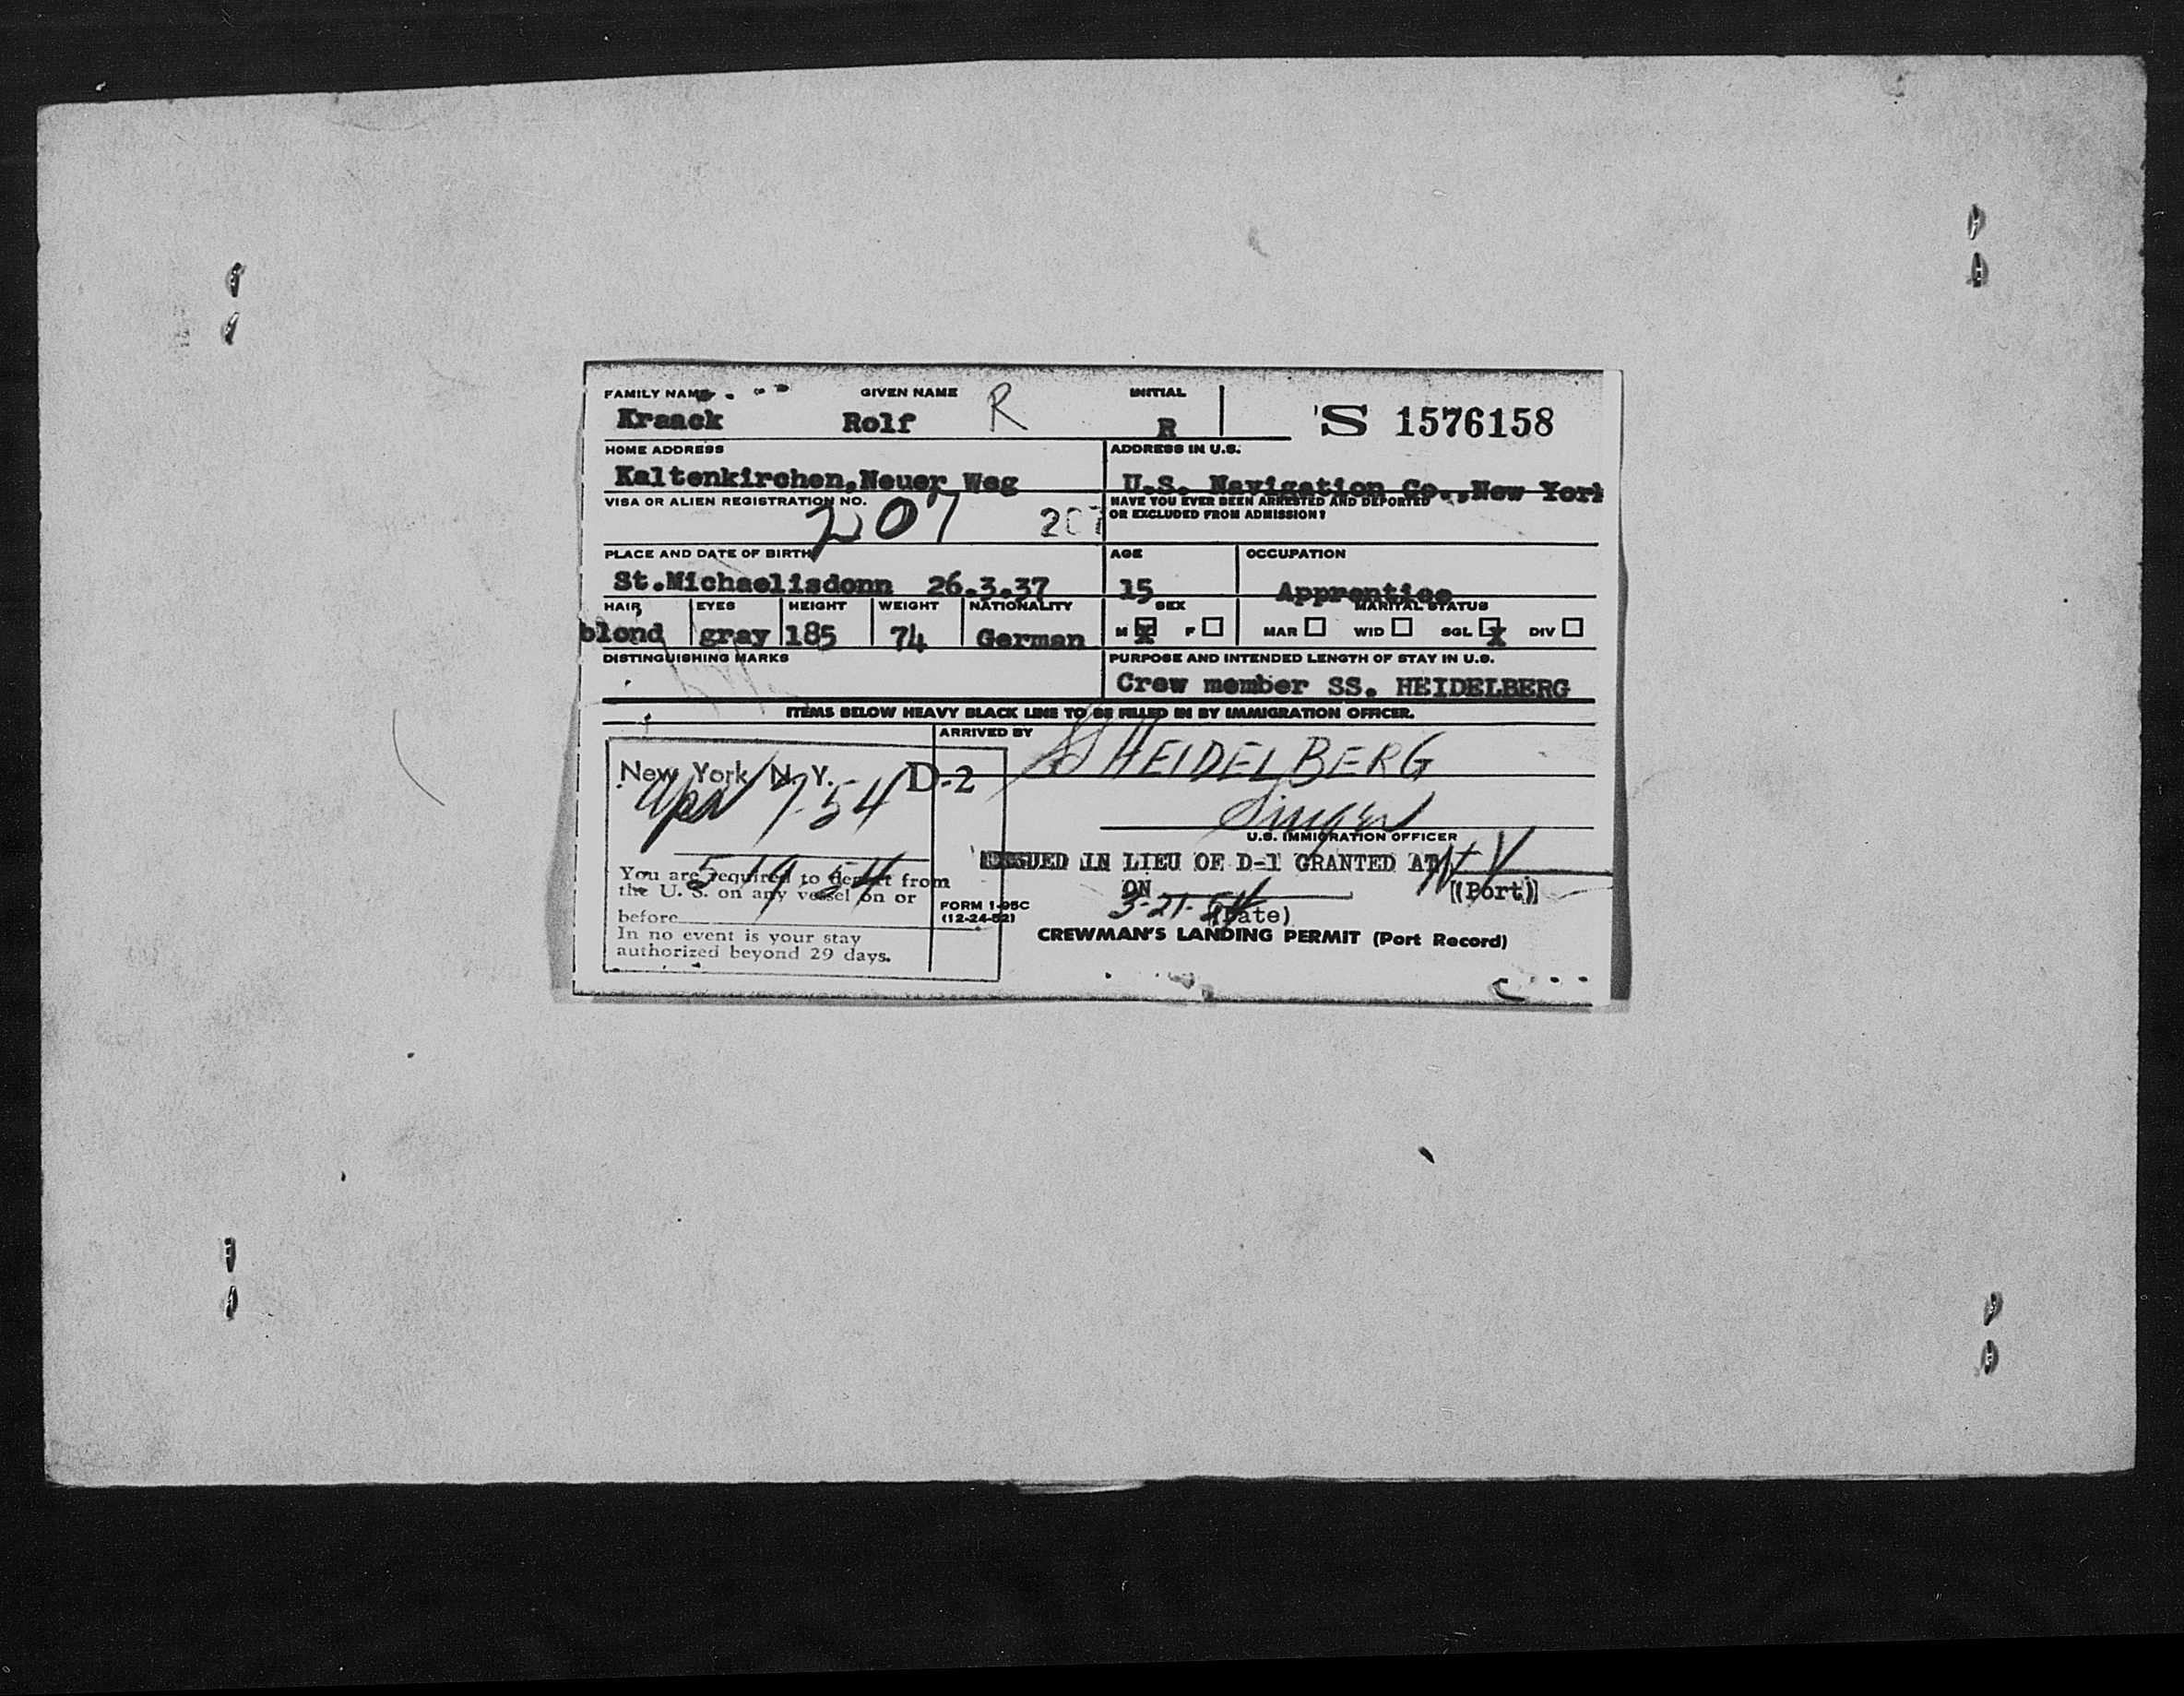 FAMILY NAME GIVEN NAME R INITIAL
Kraack Rolf R S 1576158
HOME ADDRESS ADDRESS IN U.S.
Kaltenkirchen,Neuer Weg U.S. Navigation Co.,New York
VISA OR ALIEN REGISTRATION NO. HAVE YOU EVER BEEN ARRESTED AND DEPORTED
207 207 OR EXCLUDED FROM ADMISSION?
PLACE AND DATE OF BIRTH AGE OCCUPATION
St.Michaelisdonn 26.3.37 15 Apprentice
HAIR EYES HEIGHT WEIGHT NATIONALITY SEX MARITAL STATUS
blond gray 185 74 German M X F MAR WID SGL X DIV
DISTINGUISHING MARKS PURPOSE AND INTENDED LENGTH OF STAY IN U.S.
Crew member SS. HEIDELBERG
ITEMS BELOW HEAVY BLACK LINE TO BE FILLED IN BY IMMIGRATION OFFICER.
ARRIVED BY
SS HEIDELBERG
New York N. Y. D-2
Singer
U.S. IMMIGRATION OFFICER
ISSUED IN LIEU OF D-1 GRANTED AT N Y
(Port)
ON 3-21-54
(Date)
You are required to depart from
the U. S. on any vessel on or
before
In no event is your stay
authorized beyond 29 days.
FORM I-95C
(12-24-52)
CREWMAN'S LANDING PERMIT (Port Record)